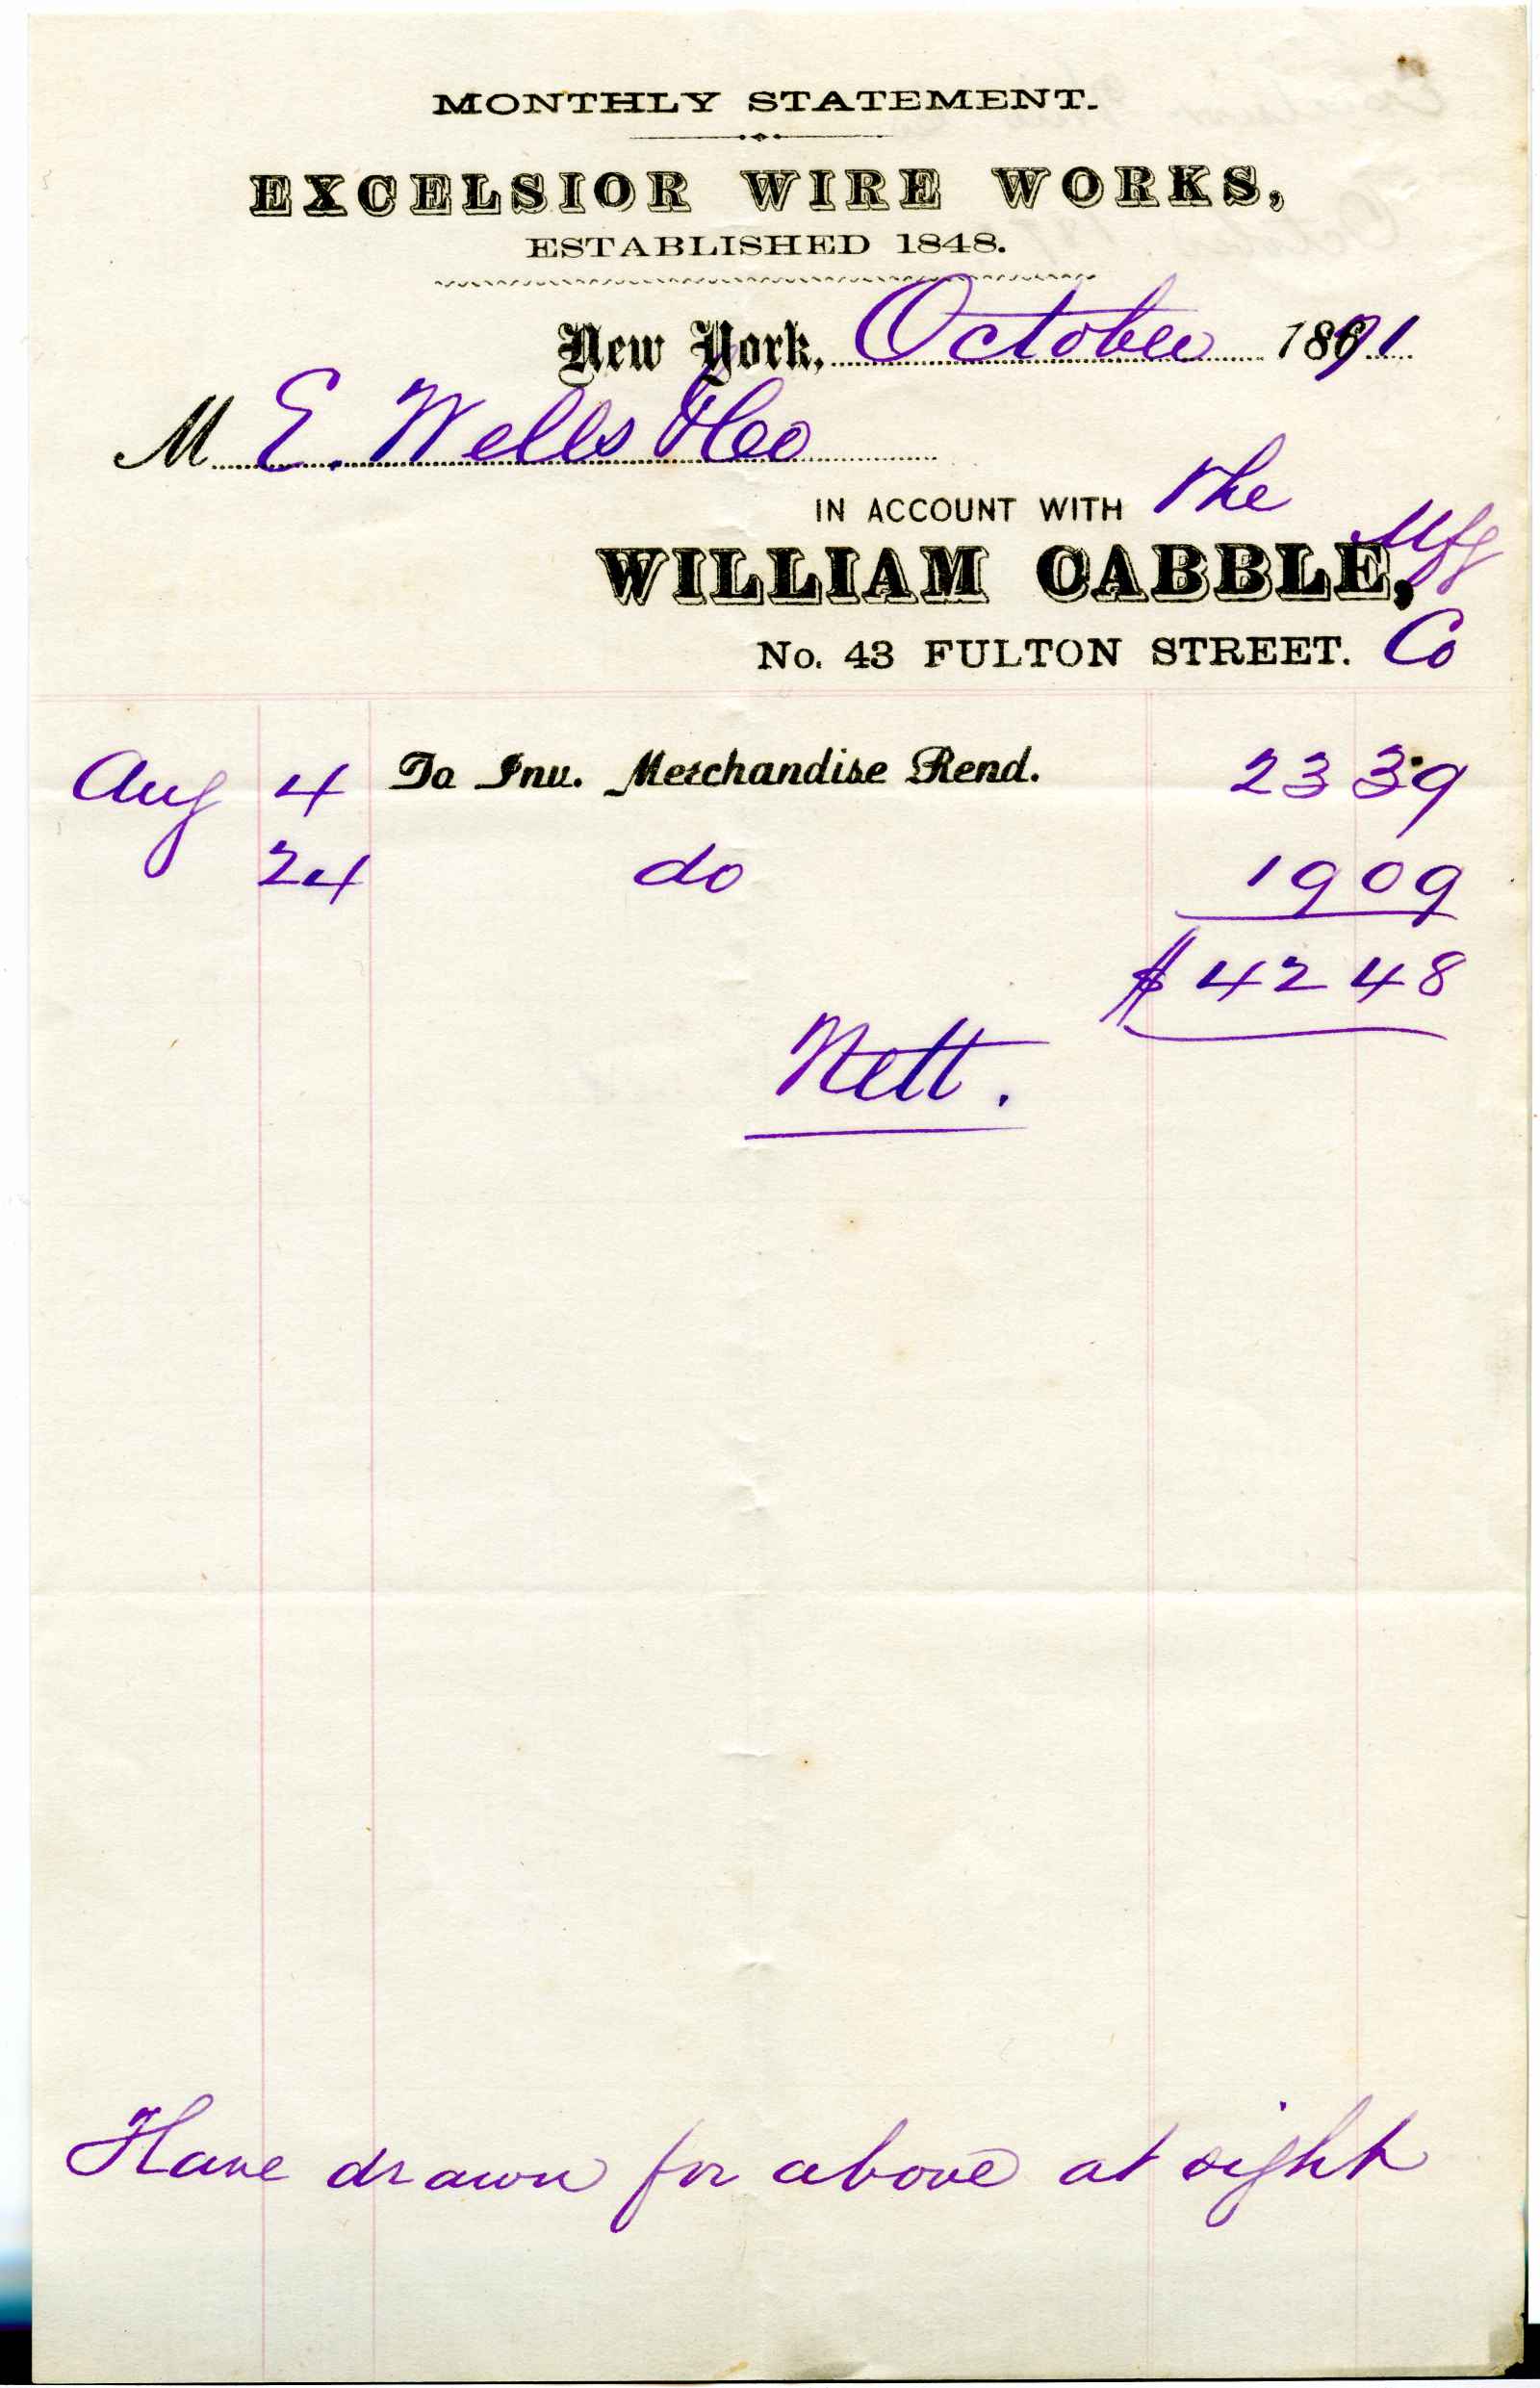 MONTHLY STATEMENT.
EXCELSIOR WIRE WORKS,
ESTABLISHED 1848.
New York, October 1891
M E. Wells & Co
IN ACCOUNT WITH The
WILLIAM CABBLE, Mfg
No. 43 FULTON STREET. Co
Aug 4 To Inv. Merchandise Rend. 23 39
24 do 19 09
$ 42 48
Nett.
Have drawn for above at sight